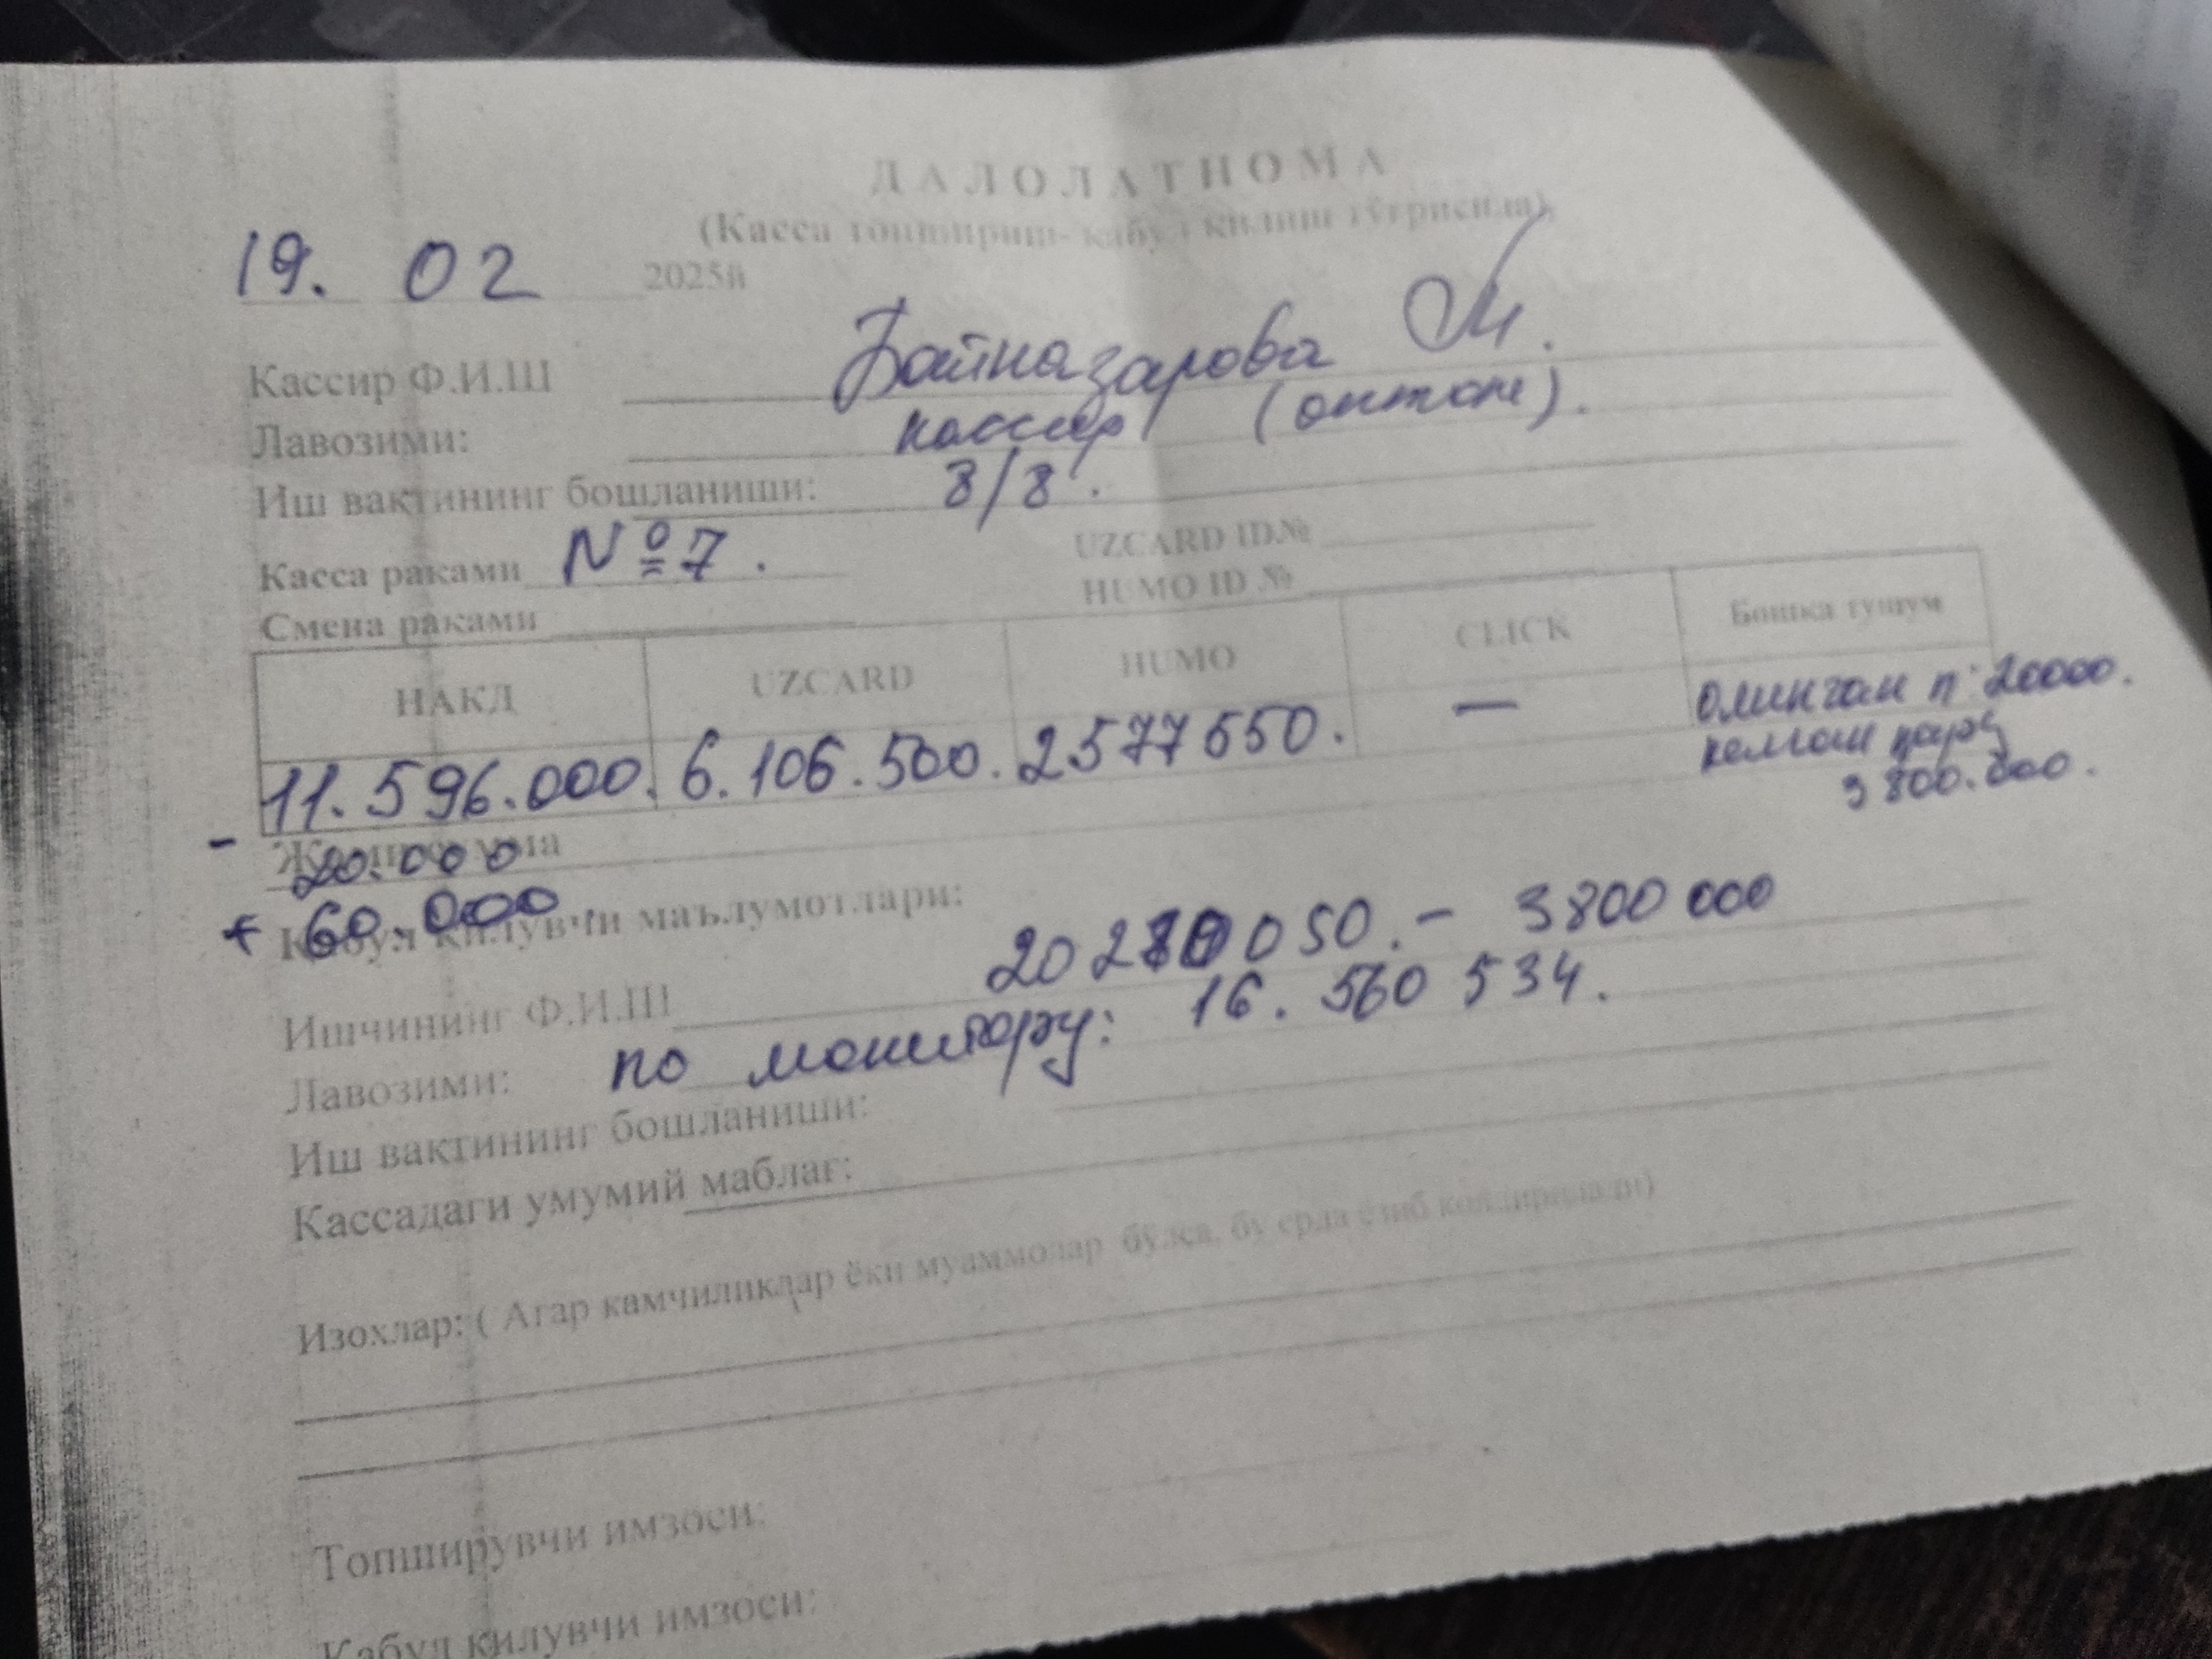 ДАЛОЛАТНОМА
(Касса топшириш- кабул килиш тўгрисида)
19. 02 2025й
Кассир Ф.И.Ш Байназарова М.
Лавозими: кассир
Иш вақтининг бошланиши: 8/8.
Касса раками №7. UZCARD ID№
Смена раками HUMO ID №
НАКД UZCARD HUMO CLICK Бошка тушум
11.596.000. 6.106.500. 2577550. — олинган п: 20000.
келган
3 800.000.
- 20.000
+ 60.000
Кабул килувчи маълумотлари:
Ишчининг Ф.И.Ш 20280050. - 3800 000
Лавозими: по монитору: 16. 560 534.
Иш вақтининг бошланиши:
Кассадаги умумий маблаг:
Изохлар: ( Агар камчиликлар ёки муаммолар бўлса, бу ерда ёзиб колдирилади)
Топширувчи имзоси:
Кабул қилувчи имзоси: